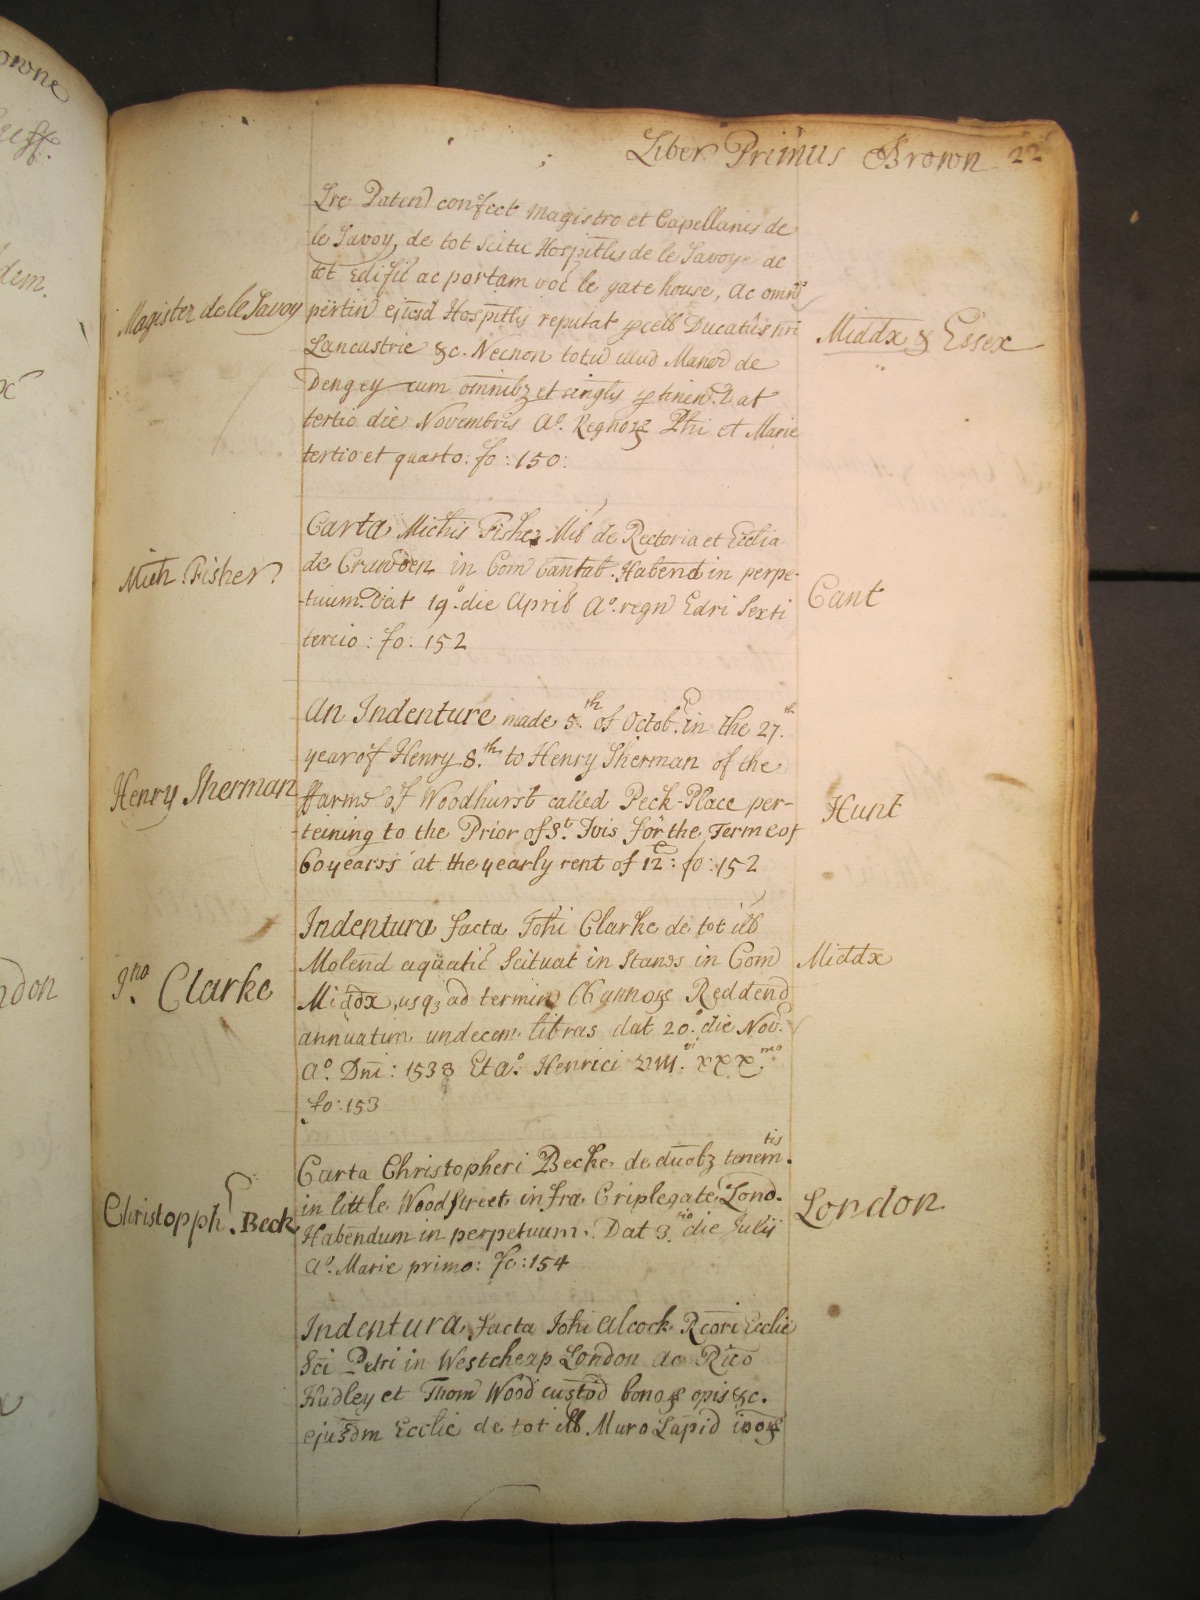 Liber Primus Brown 22
Lre Paten confect Magistro et Capellanis de
le Savoy, de tot scitu Hospitlis de le Savoye ac
tot Edific ac portam voc le gate house, ac omn
Magister de le Savoy
pertin ejusd Hospitlis reputat pcell Ducatus nri
Middx & Essex
Lancastrie &c. Necnon totu illud Maner de
Dengey cum omnibz et singlis ptinen. Dat
tertio die Novembris Ao. Regnorz Phi et Marie
tertio et quarto: fo: 150:
Carta Michis Fisher Mil de Rectoria et Ecclia
Mich Fisher
de Crawden in Com Cantab. Habend in perpe-
Cant
-tuum. Dat 19o. die April Ao. regn Edri Sexti
tercio: fo: 152
An Indenture made 5.th of Octob. in the 27.th
year of Henry 8.th to Henry Sherman of the
Henry Sherman
ffarme of Woodhurst called Peck-Place per-
Hunt
-teining to the Prior of St. Ivis for the Terme of
60 yearss at the yearly rent of 12: fo: 152
Indentura facta Johi Clarke de tot ill
Jno. Clarke
Molend aquatic Scituat in Stanes in Com
Middx
Middx usqz ad termin 66 annorz Reddend
annuatim undecem libras dat 20.o die Nov.
Ao. Dni: 1538 Et ao. Henrici VIII.vi xxx.mo
fo: 153
Carta Christopheri Becke de duobz tenem.tis
Christopph. Beck
in little Woodstreet infra Criplegate Lond.
London
Habendum in perpetuum. Dat 3.tio die Julij
Ao. Marie primo: fo: 154
Indentura facta Johi Alcock Rcori Ecclie
Sci Petri in Westcheap London ac Rico
Hadley et Thom Wood custod bonorz opis &c.
ejusdm Ecclie de tot ill Muro Lapid iporz